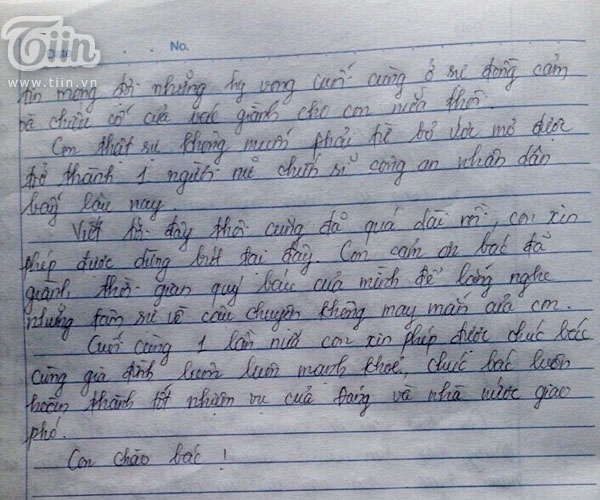 Tiin
www.tiin.vn
Date: No.
mong đợi những hy vọng cuối cùng ở sự đồng cảm
và chiếu cố của bác giành cho con nữa thôi.
Con thật sự không muốn phải từ bỏ ước mơ được
trở thành 1 người nữ chiến sĩ công an nhân dân
bấy lâu nay.
Viết tới đây thôi cũng đã quá dài rồi, con xin
phép được dừng bút tại đây. Con cám ơn bác đã
giành thời gian quý báu của mình để lắng nghe
những tâm sự về câu chuyện không may mắn của con.
Cuối cùng 1 lần nữa con xin phép được chúc bác
cùng gia đình luôn luôn mạnh khoẻ, chúc bác luôn
hoàn thành tốt nhiệm vụ của Đảng và nhà nước giao
phó.
Con chào bác !